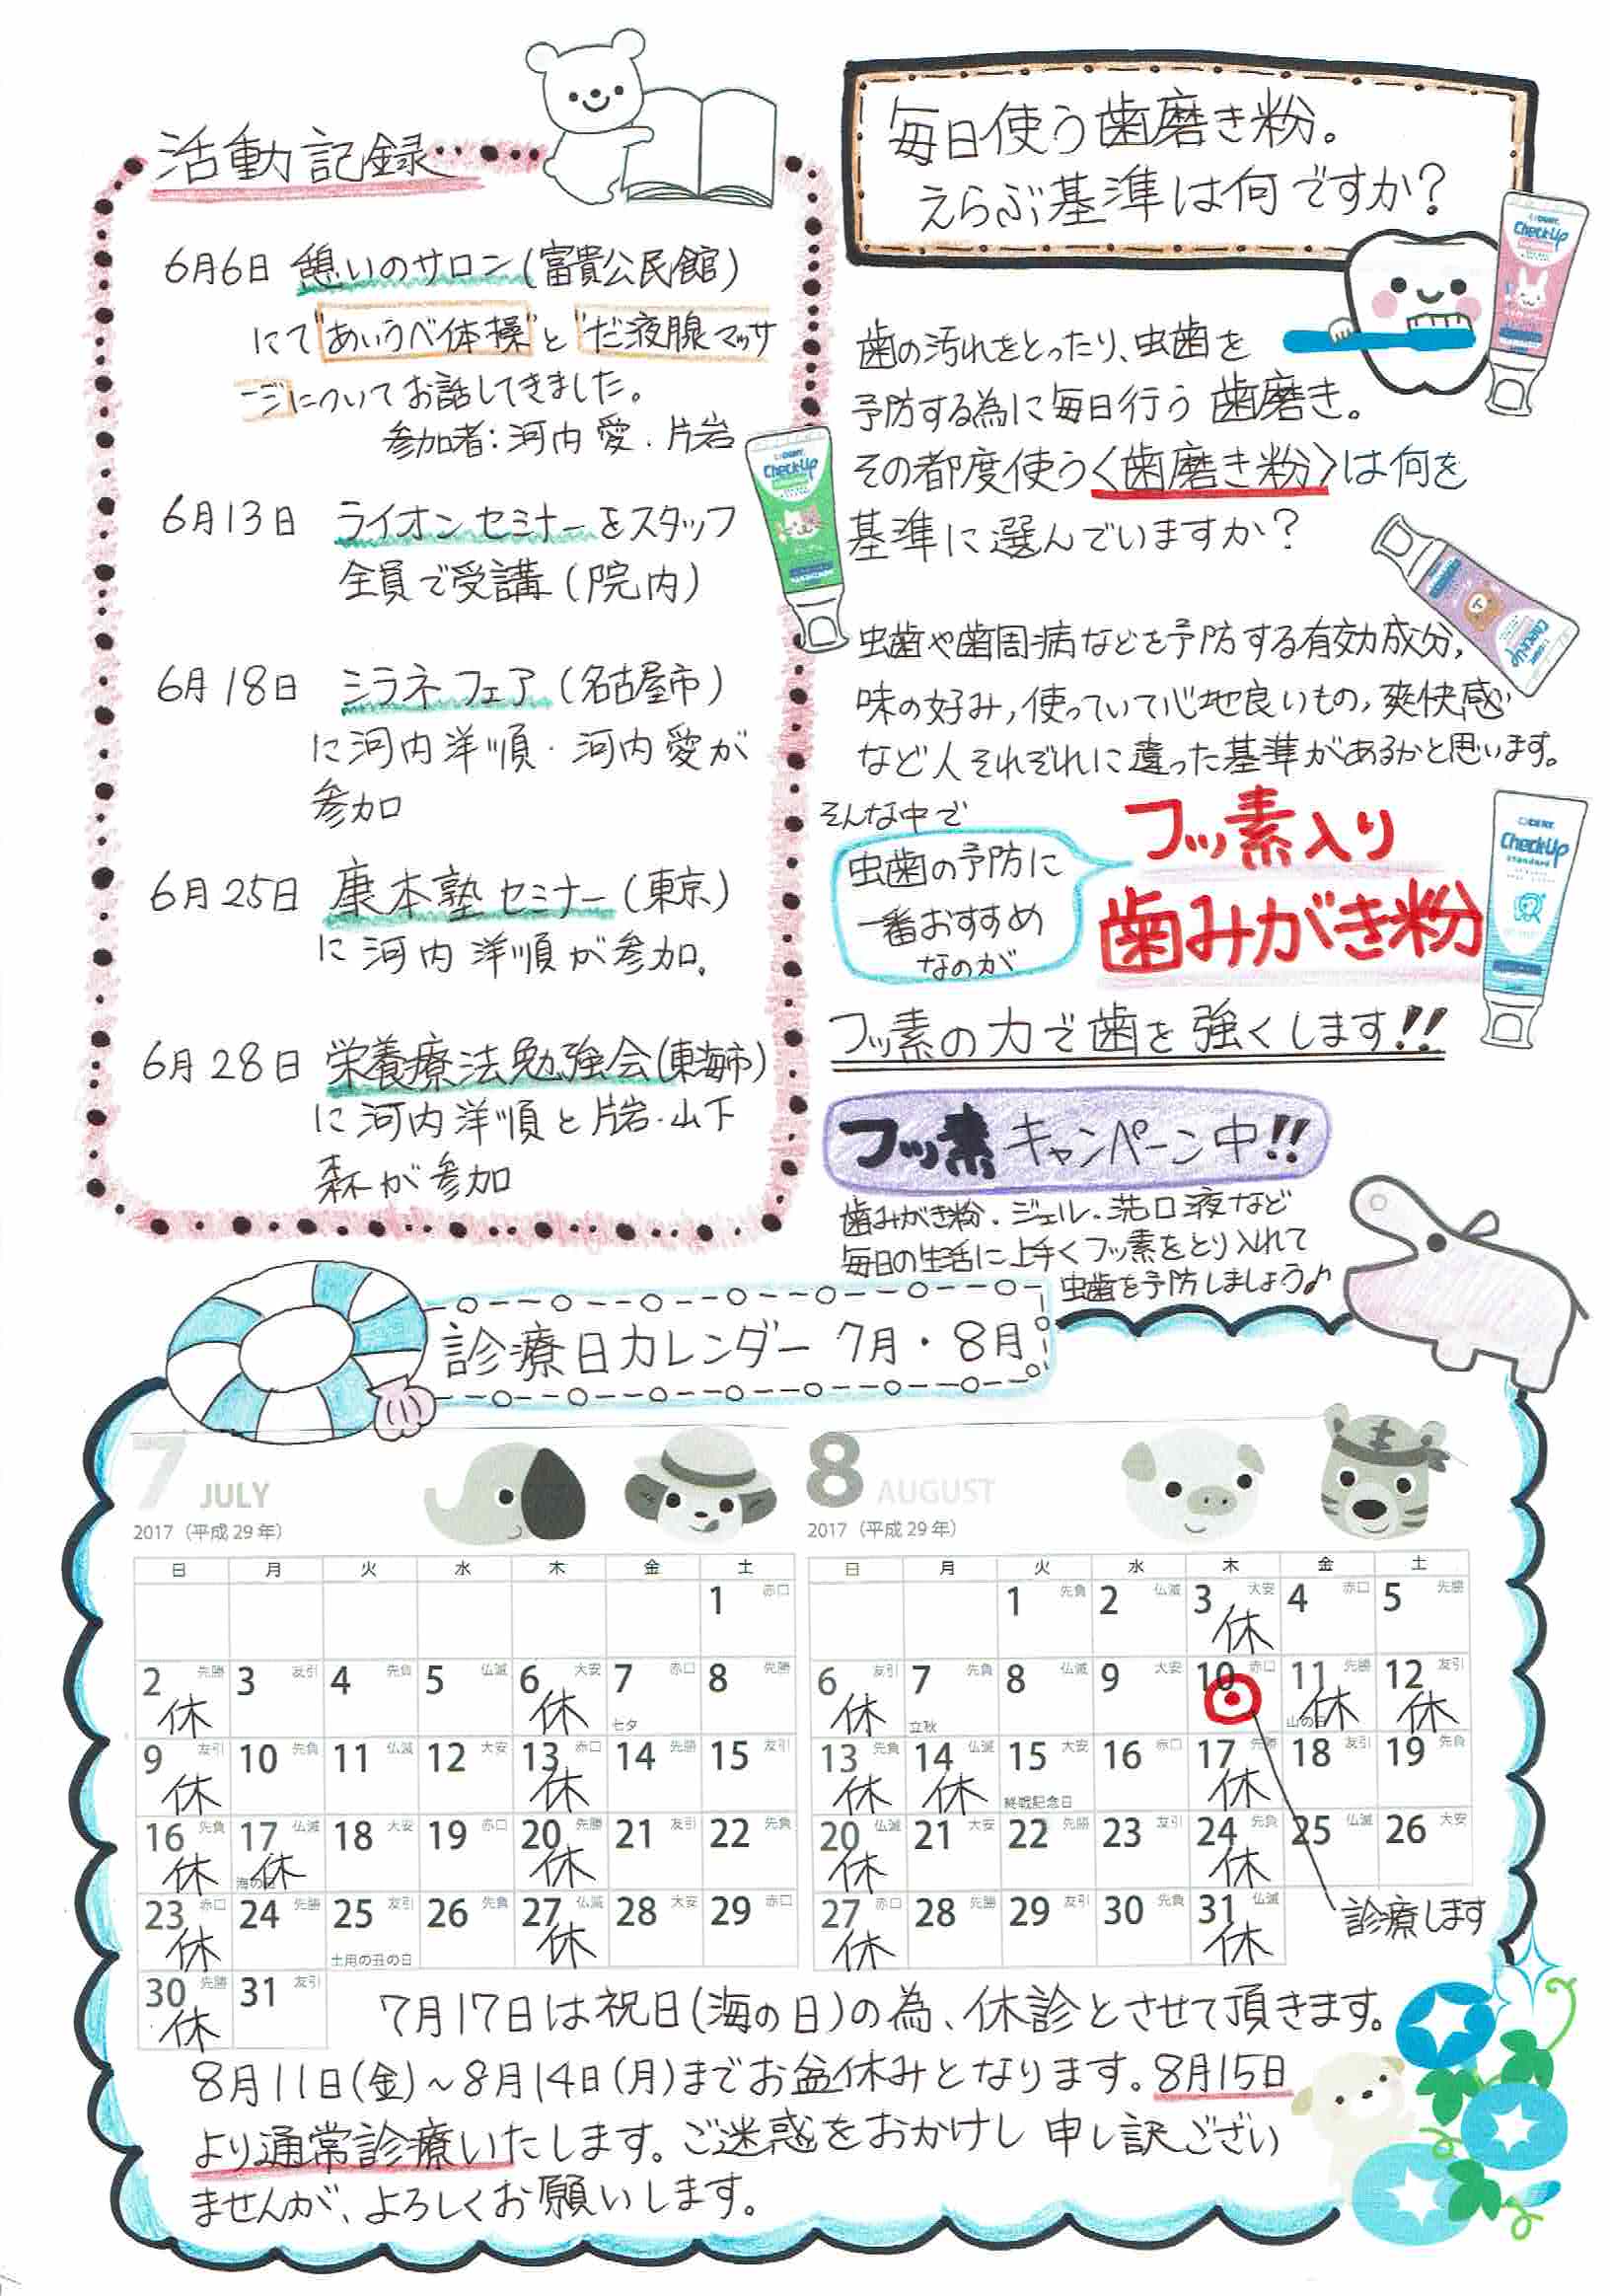 活動記録
6月6日 憩いのサロン(富貴公民館)
にて"あいうべ体操"と"だ液腺マッサ
ージ"についてお話してきました。
参加者:河内愛・片岩
6月13日 ライオンセミナーをスタッフ
全員で受講(院内)
6月18日 ミラネフェア(名古屋市)
に河内洋順・河内愛が
参加
6月25日 康本塾セミナー(東京)
に河内洋順が参加。
6月28日 栄養療法勉強会(東海市)
に河内洋順と片岩・山下
森が参加
毎日使う歯磨き粉。
えらぶ基準は何ですか?
Check-Up
歯の汚れをとったり、虫歯を
予防する為に毎日行う歯磨き。
その都度使う<歯磨き粉>は何を
基準に選んでいますか?
Check-Up
Check-Up
虫歯や歯周病などを予防する有効成分,
味の好み,使っていて心地良いもの,爽快感
など人それぞれに違った基準があるかと思います。
そんな中で
虫歯の予防に
一番おすすめ
なのが
フッ素入り
歯みがき粉
Check-Up
standard
フッ素の力で歯を強くします!!
フッ素キャンペーン中!!
歯みがき粉・ジェル・洗口液など
毎日の生活に上手くフッ素をとり入れて
虫歯を予防しましょう♪
診療日カレンダー 7月・8月
7 JULY
2017(平成29年)
日 月 火 水 木 金 土
1 赤口
2 先勝 3 友引 4 先負 5 仏滅 6 大安 7 赤口 8 先勝
休 休 七夕
9 友引 10 先負 11 仏滅 12 大安 13 赤口 14 先勝 15 友引
休 休
16 先負 17 仏滅 18 大安 19 赤口 20 先勝 21 友引 22 先負
休 海の日 休 休
23 赤口 24 先勝 25 友引 26 先負 27 仏滅 28 大安 29 赤口
休 土用の丑の日 休
30 先勝 31 友引
休
8 AUGUST
2017(平成29年)
日 月 火 水 木 金 土
1 先負 2 仏滅 3 大安 4 赤口 5 先勝
休
6 友引 7 先負 8 仏滅 9 大安 10 赤口 11 先勝 12 友引
休 立秋 山の日 休 休
13 先負 14 仏滅 15 大安 16 赤口 17 先勝 18 友引 19 先負
休 休 終戦記念日 休
20 仏滅 21 大安 22 先勝 23 友引 24 先負 25 仏滅 26 大安
休 休
27 赤口 28 先勝 29 友引 30 先負 31 仏滅
休 休
診療します
7月17日は祝日(海の日)の為、休診とさせて頂きます。
8月11日(金)~8月14日(月)までお盆休みとなります。8月15日
より通常診療いたします。ご迷惑をおかけし申し訳ござい
ませんが、よろしくお願いします。